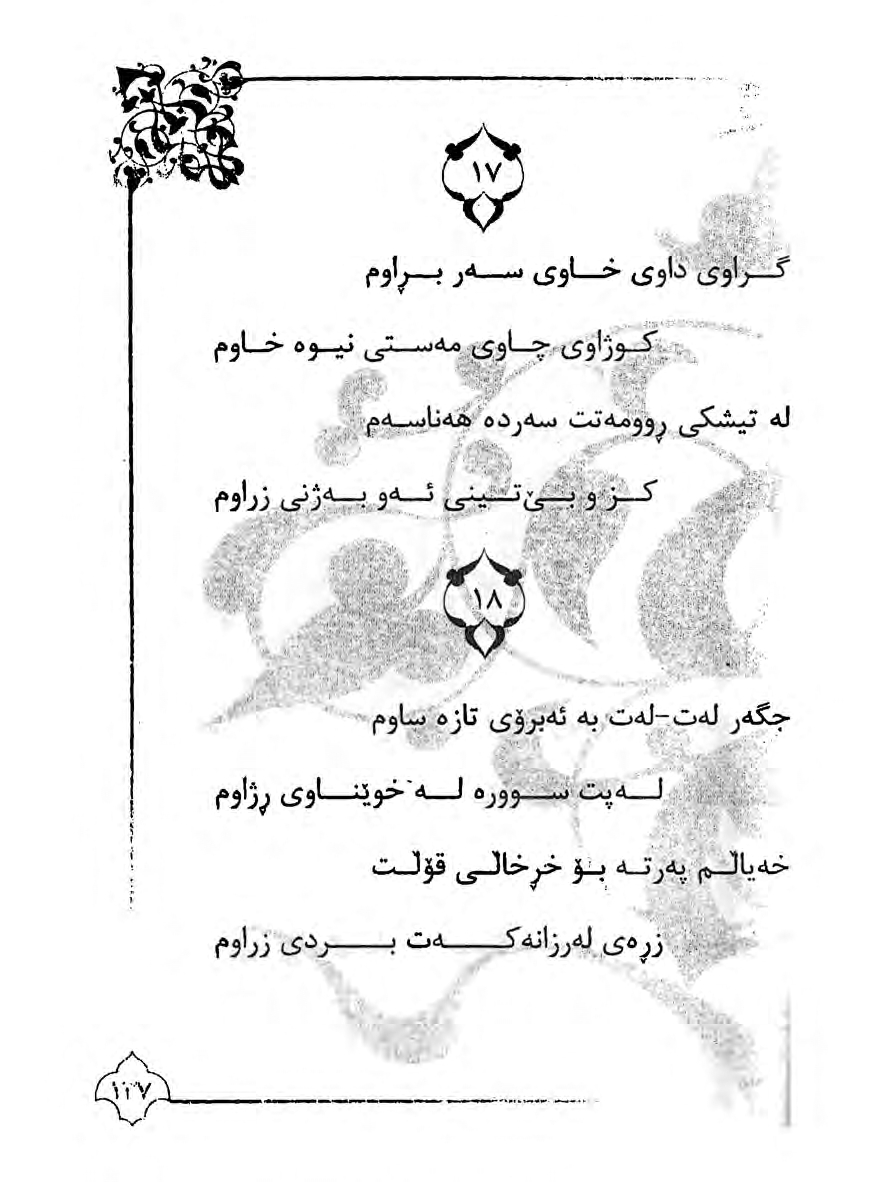 ١٧
گراوی داوی خاوی سەر بڕاوم
کوژاوی چاوی مەستی نیوە خاوم
لە تیشکی ڕوومەتت سەردە هەناسەم
کز و بێ‌تینی ئەو بەژنی زراوم
١٨
جگەر لەت-لەت بە ئەبرۆی تازە ساوم
لەپت سوورە لە خوێناوی ڕژاوم
خەیاڵم پەرتە بۆ خرخاڵی قۆڵت
زڕەی لەرزانەکەت بردی زراوم